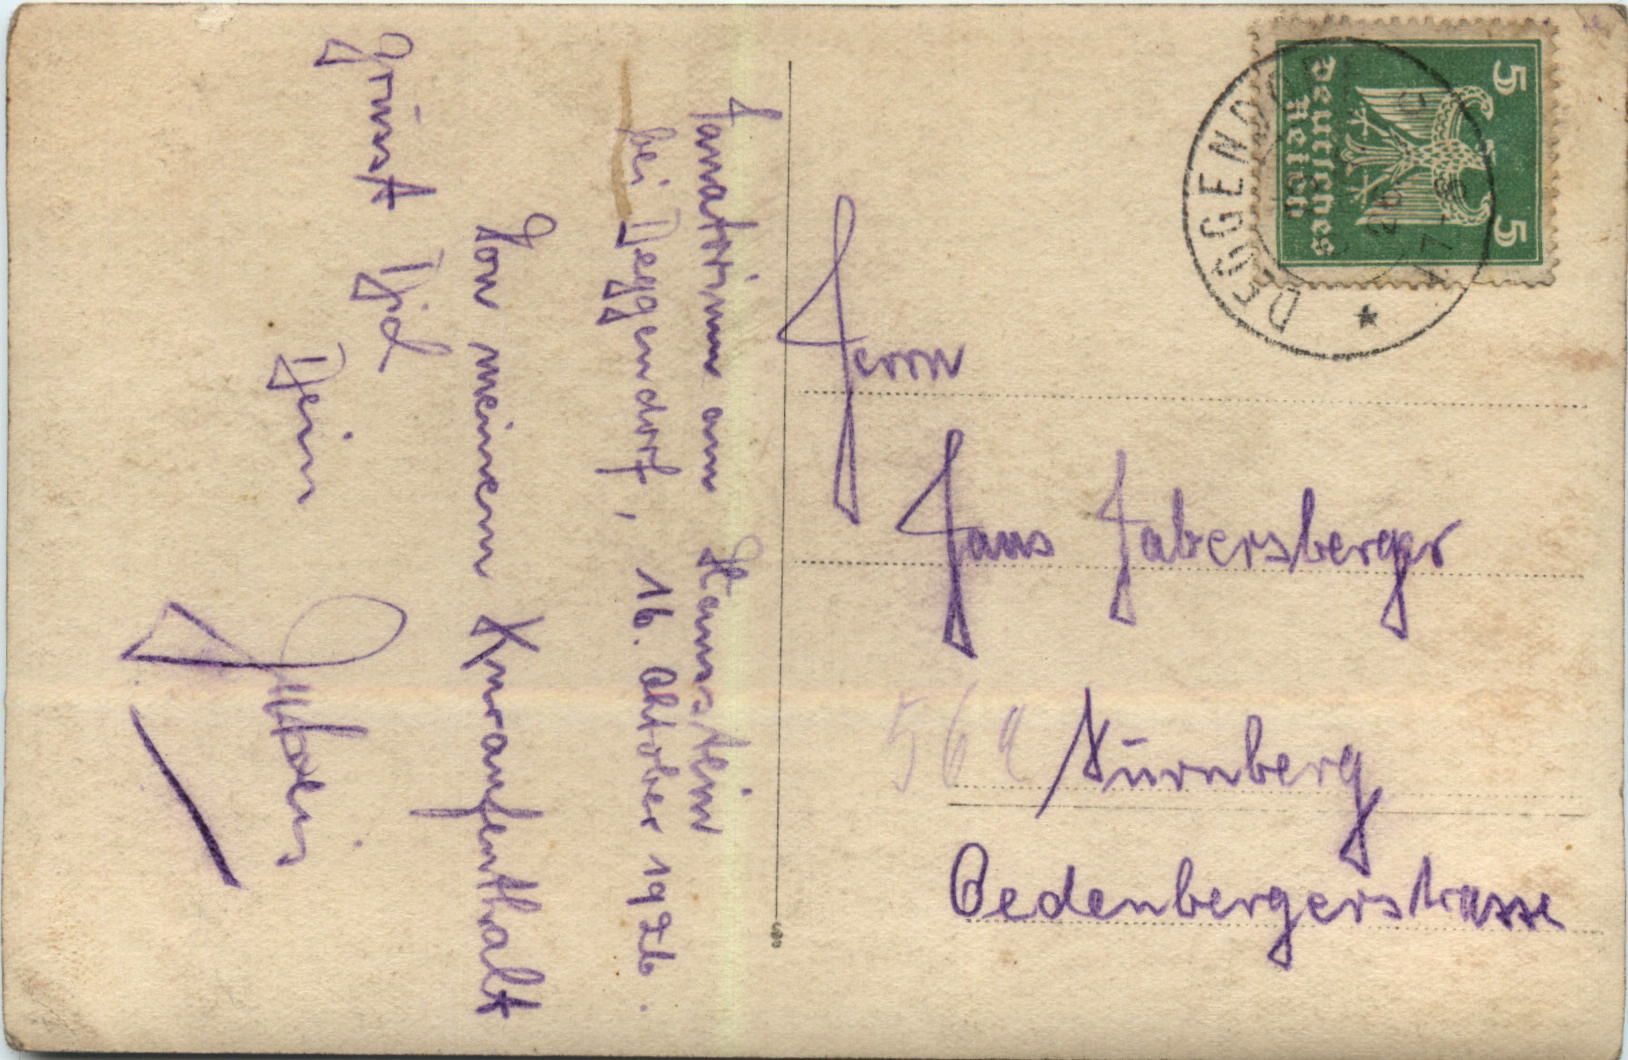 Sanatorium am Hausstein
bei Deggendorf, 16. Oktober 1926.
Von meinem Kuraufenthalt
grüsst Dich
Dein
Herrn
Hans Habersberger
Nürnberg
Oedenbergerstrasse
5 5
Deutsches
Reich
DEGGENDORF
26
7-8